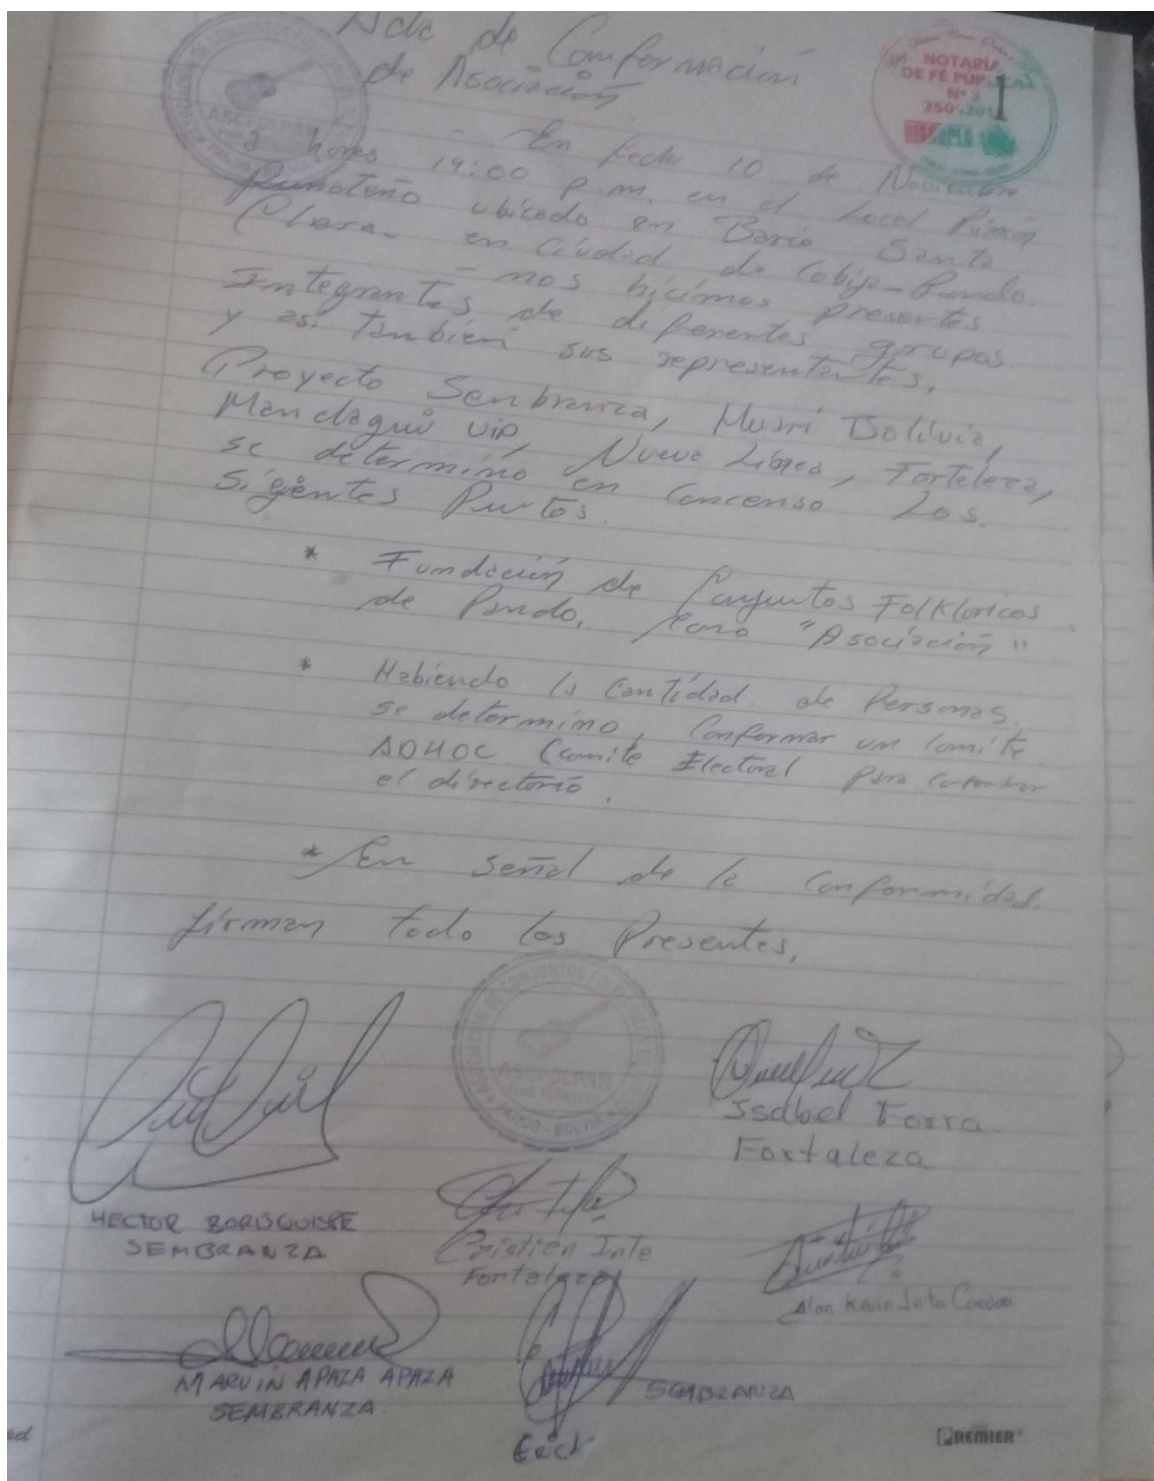 Acta de Conformación
de Asociación.
- En fecha 10 de Noviembre
a horas 19:00 p.m. en el Local Rincón
Punateño ubicado en Bario Santa
Clara- en Ciudad de Cobija-Pando.
- nos hicimos presentes
Integrantes de diferentes grupos
y asi también sus representantes,
Proyecto Senbranza, Musri Bolivia,
Mandagui vip, Nueva Linea, Fortaleza,
se determino en Concenso Los.
Sigentes Puntos.
* Fundación de Conjuntos Folkloricos
de Pando, como "Asociación"
* Habiendo la Cantidad de Personas.
se determino, Conformar un Comite
ADHOC (comite Electoral para
el directorio.
* En señal de la Conformidad.
firman todo los Presentes,
NOTARÍA
DE FÉ PUBLICA
Nº
1
ASOCIACIÓN DE CONJUNTOS
ASCIFOLPAN
PANDO - BOLIVIA
Issabel Torra
Fortaleza
HECTOR
SEMBRANZA
Cristian Inte
Fortaleza
Alan Kevin
MARVIN APAZA APAZA
SEMBRANZA
SEMBRANZA
Erick
PREMIER